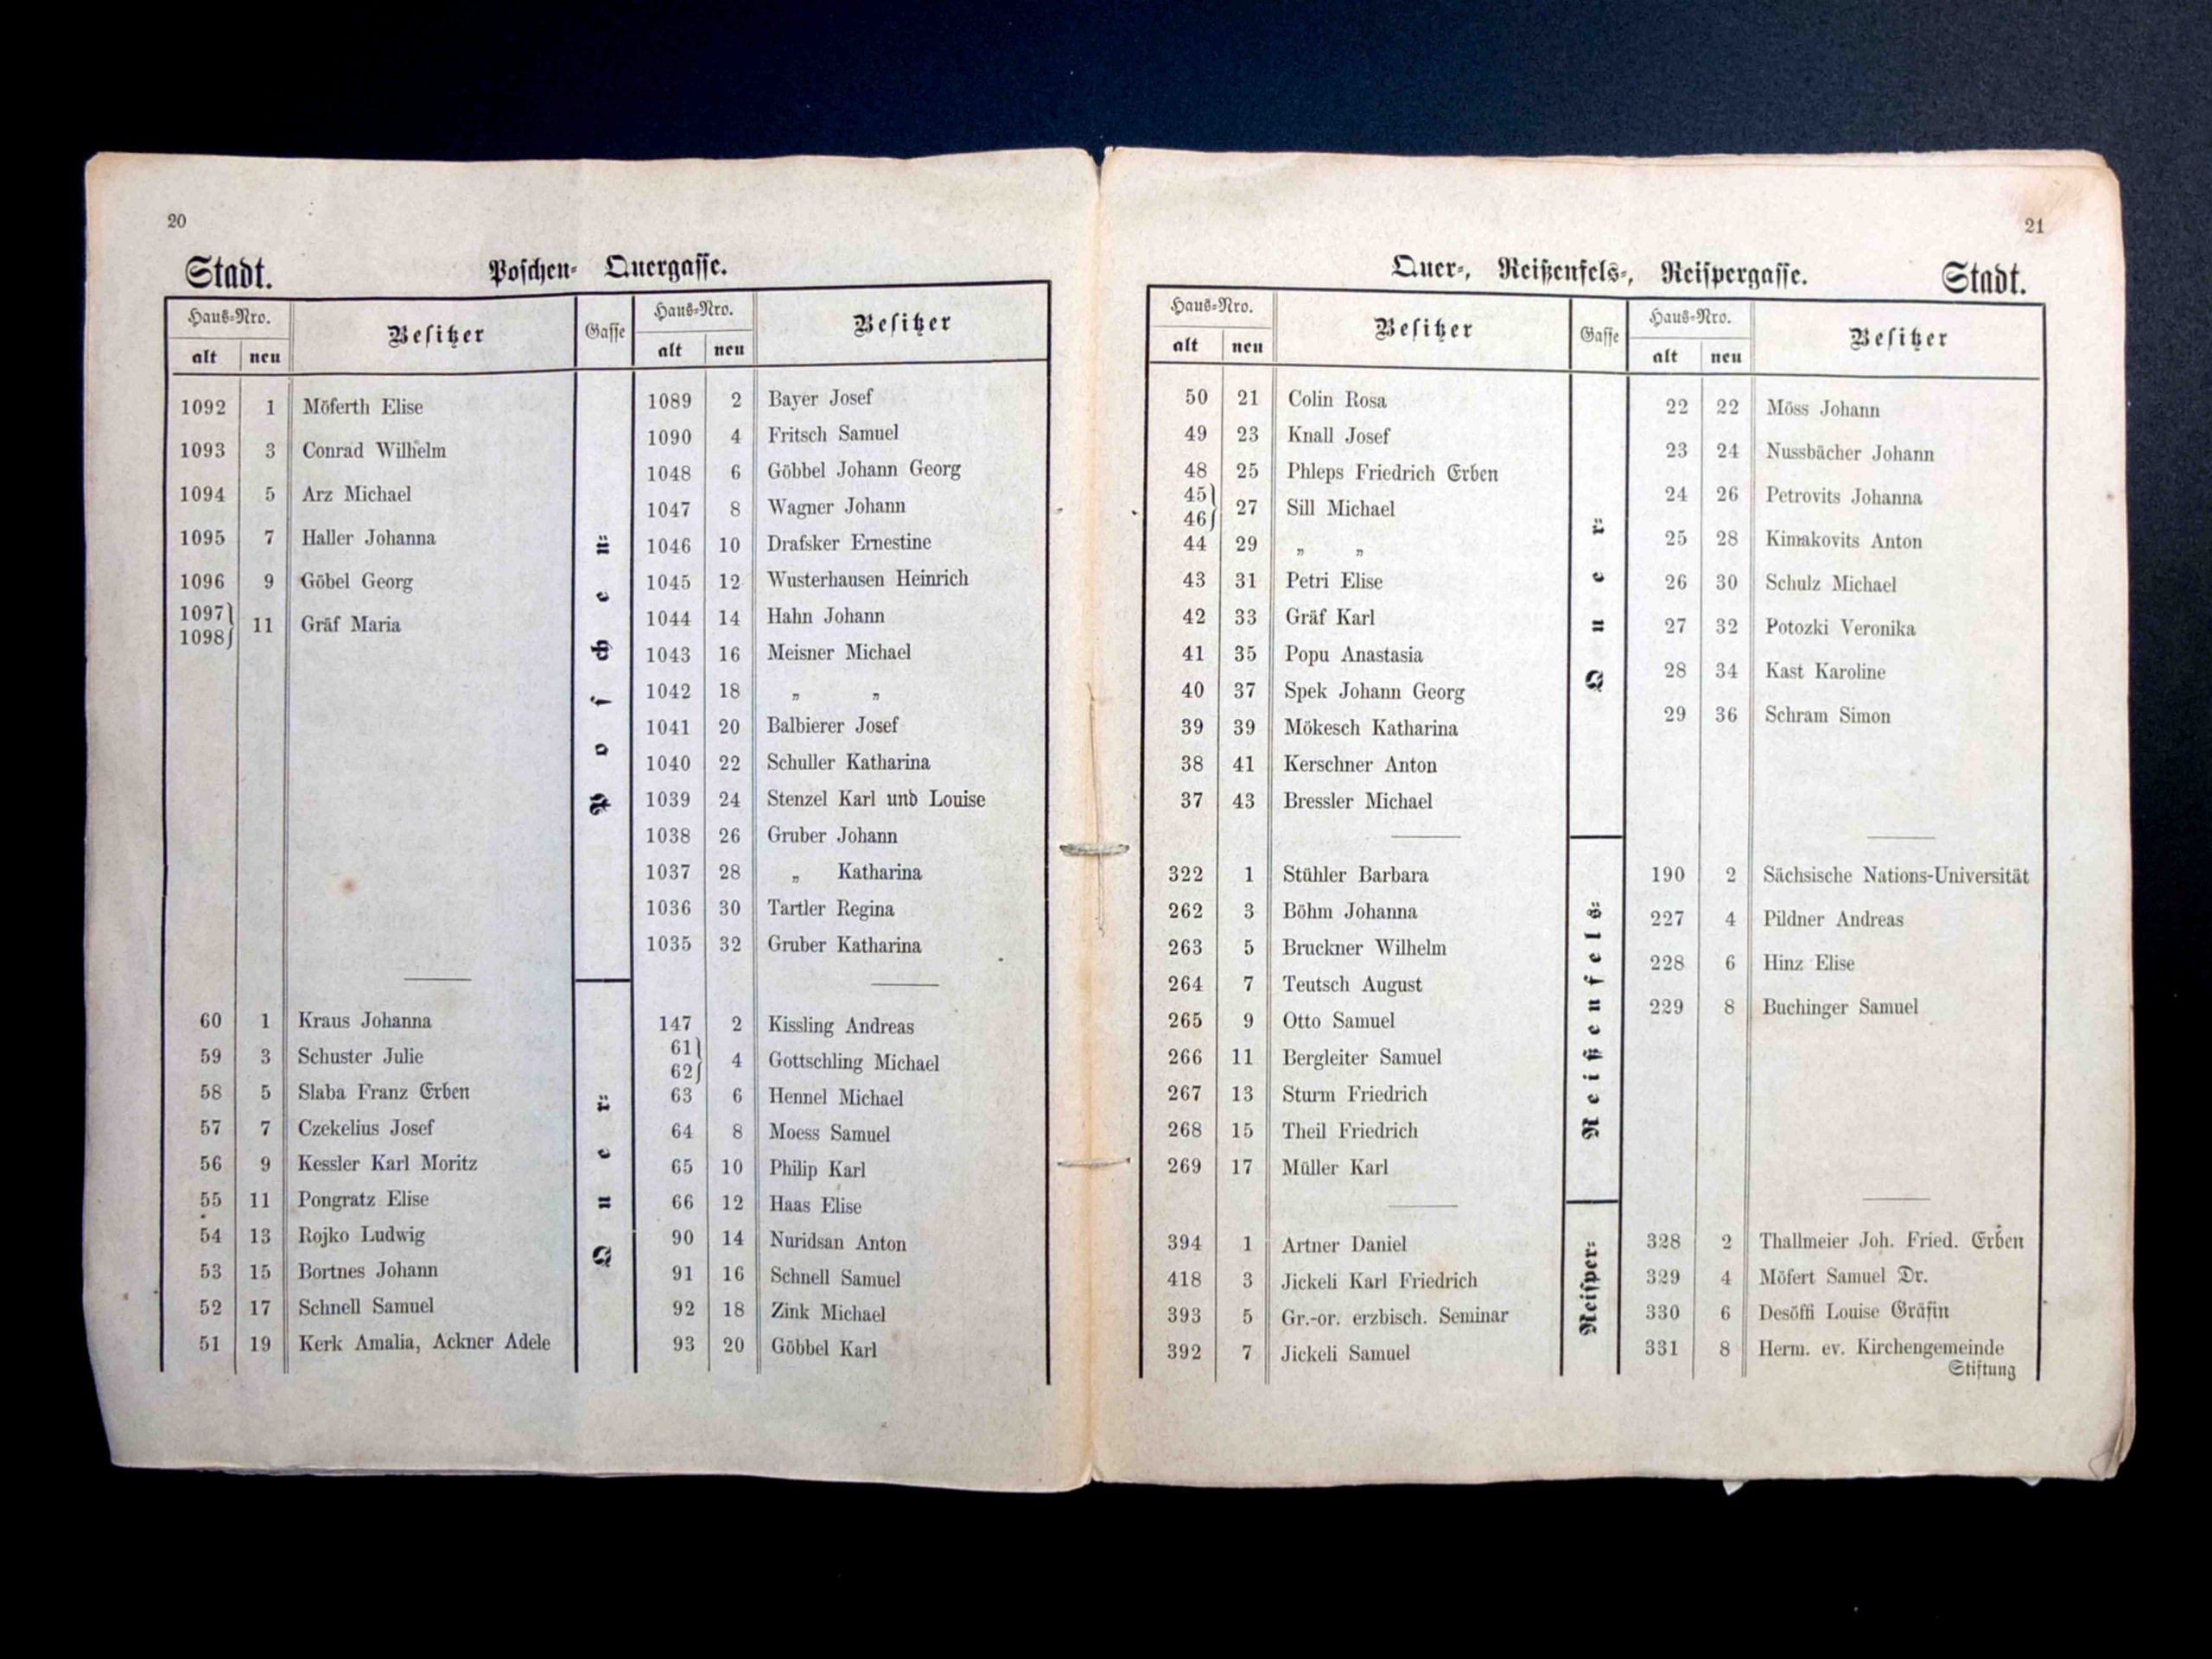 20
Stadt. Poschen- Quergasse.
Haus-Nro. Besitzer Gasse Haus-Nro. Besitzer
alt neu alt neu
Poschen-
1092 1 Möferth Elise
1093 3 Conrad Wilhelm
1094 5 Arz Michael
1095 7 Haller Johanna
1096 9 Göbel Georg
1097
1098 11 Gräf Maria
1089 2 Bayer Josef
1090 4 Fritsch Samuel
1048 6 Göbbel Johann Georg
1047 8 Wagner Johann
1046 10 Drafsker Ernestine
1045 12 Wusterhausen Heinrich
1044 14 Hahn Johann
1043 16 Meisner Michael
1042 18 „ „
1041 20 Balbierer Josef
1040 22 Schuller Katharina
1039 24 Stenzel Karl und Louise
1038 26 Gruber Johann
1037 28 „ Katharina
1036 30 Tartler Regina
1035 32 Gruber Katharina
Quer-
60 1 Kraus Johanna
59 3 Schuster Julie
58 5 Slaba Franz Erben
57 7 Czekelius Josef
56 9 Kessler Karl Moritz
55 11 Pongratz Elise
54 13 Rojko Ludwig
53 15 Bortnes Johann
52 17 Schnell Samuel
51 19 Kerk Amalia, Ackner Adele
147 2 Kissling Andreas
61
62 4 Gottschling Michael
63 6 Hennel Michael
64 8 Moess Samuel
65 10 Philip Karl
66 12 Haas Elise
90 14 Nuridsan Anton
91 16 Schnell Samuel
92 18 Zink Michael
93 20 Göbbel Karl
21
Quer-, Reißenfels-, Reispergasse. Stadt.
Haus-Nro. Besitzer Gasse Haus-Nro. Besitzer
alt neu alt neu
Quer-
50 21 Colin Rosa
49 23 Knall Josef
48 25 Phleps Friedrich Erben
45
46 27 Sill Michael
44 29 „ „
43 31 Petri Elise
42 33 Gräf Karl
41 35 Popu Anastasia
40 37 Spek Johann Georg
39 39 Mökesch Katharina
38 41 Kerschner Anton
37 43 Bressler Michael
22 22 Möss Johann
23 24 Nussbächer Johann
24 26 Petrovits Johanna
25 28 Kimakovits Anton
26 30 Schulz Michael
27 32 Potozki Veronika
28 34 Kast Karoline
29 36 Schram Simon
Reißenfels-
322 1 Stühler Barbara
262 3 Böhm Johanna
263 5 Bruckner Wilhelm
264 7 Teutsch August
265 9 Otto Samuel
266 11 Bergleiter Samuel
267 13 Sturm Friedrich
268 15 Theil Friedrich
269 17 Müller Karl
190 2 Sächsische Nations-Universität
227 4 Pildner Andreas
228 6 Hinz Elise
229 8 Buchinger Samuel
Reisper-
394 1 Artner Daniel
418 3 Jickeli Karl Friedrich
393 5 Gr.-or. erzbisch. Seminar
392 7 Jickeli Samuel
328 2 Thallmeier Joh. Fried. Erben
329 4 Möfert Samuel Dr.
330 6 Desöffi Louise Gräfin
331 8 Herm. ev. Kirchengemeinde
Stiftung